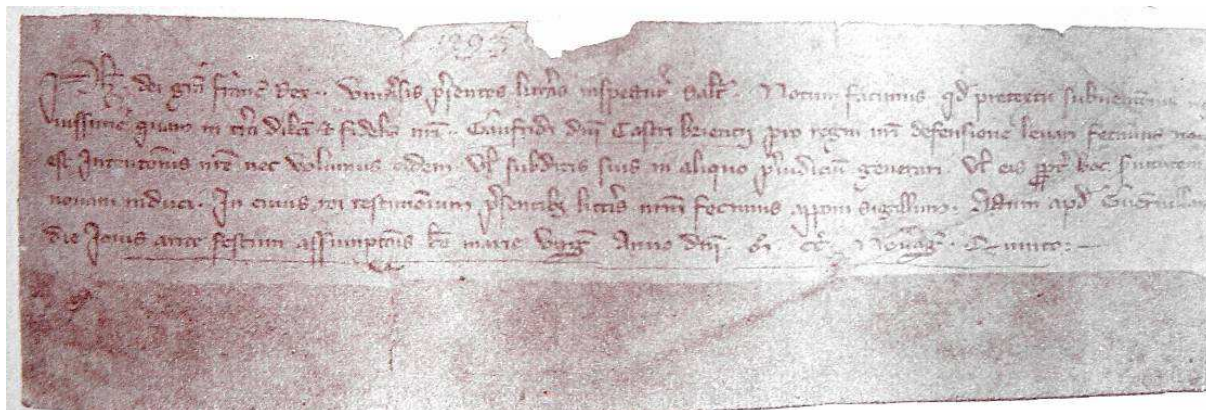 1295
Ph dei gra franc Rex .. Univsis psentes litteras inspectur salt . Notum facimus qd pretextu subvencionis
nuissime quam in tra dilci & fidelis nri .. Gaufridi dni Castri briencii pro regni nri defensione levari fecimus non
est Intentionis nre nec volumus eidem vl subditis suis in aliquo piudicium generari . Vl eis ppt hoc servitutem
novam induci . In cuius rei testimonium psentibz litteris nrm fecimus apponi sigillum . Actum apd
die Jovis ante festum assumptionis be marie virg Anno dni . M CC Nonag Quinto :